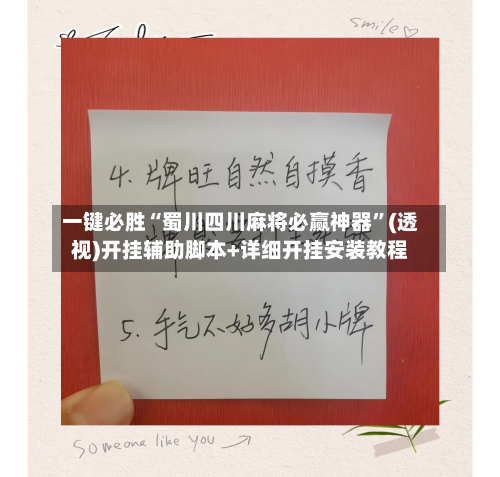 smile
4. 牌旺自然自摸香
一键必胜“蜀川四川麻将必赢神器”(透
视)开挂辅助脚本+详细开挂安装教程
5. 手气不好多胡小牌
Someone like you